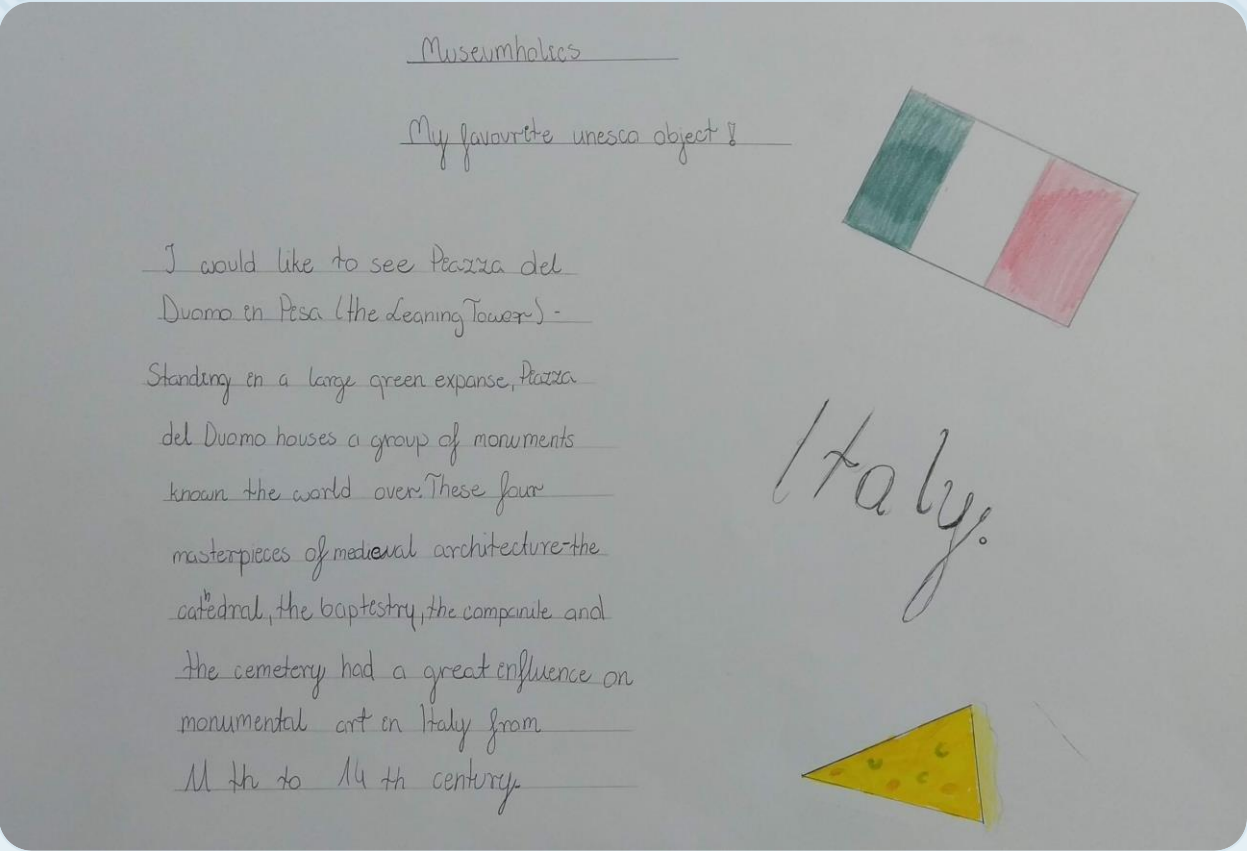 Museumholics
My favourite unesco object!
I would like to see Piazza del
Duomo in Pisa (the Leaning Tower) -
Standing in a large green expanse, Piazza
del Duomo houses a group of monuments
known the world over. These four
masterpieces of medieval architecture-the
cathedral, the baptistry, the companile and
the cemetery had a great influence on
monumental art in Italy from
11 th to 14 th century.
Italy.